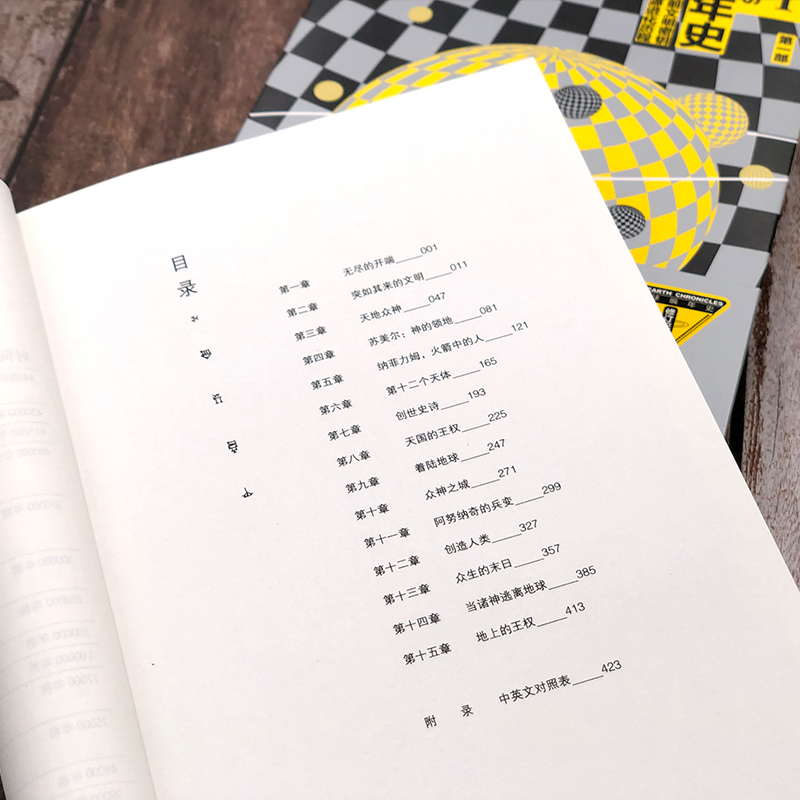 年史
第一部
EARTH CHRONICLES
修订
目录
第一章 无尽的开端____001
第二章 突如其来的文明____011
第三章 天地众神____047
第四章 苏美尔：神的领地____081
第五章 纳菲力姆，火箭中的人____121
第六章 第十二个天体____165
第七章 创世史诗____193
第八章 天国的王权____225
第九章 着陆地球____247
第十章 众神之城____271
第十一章 阿努纳奇的兵变____299
第十二章 创造人类____327
第十三章 众生的末日____357
第十四章 当诸神逃离地球____385
第十五章 地上的王权____413
附录 中英文对照表____423